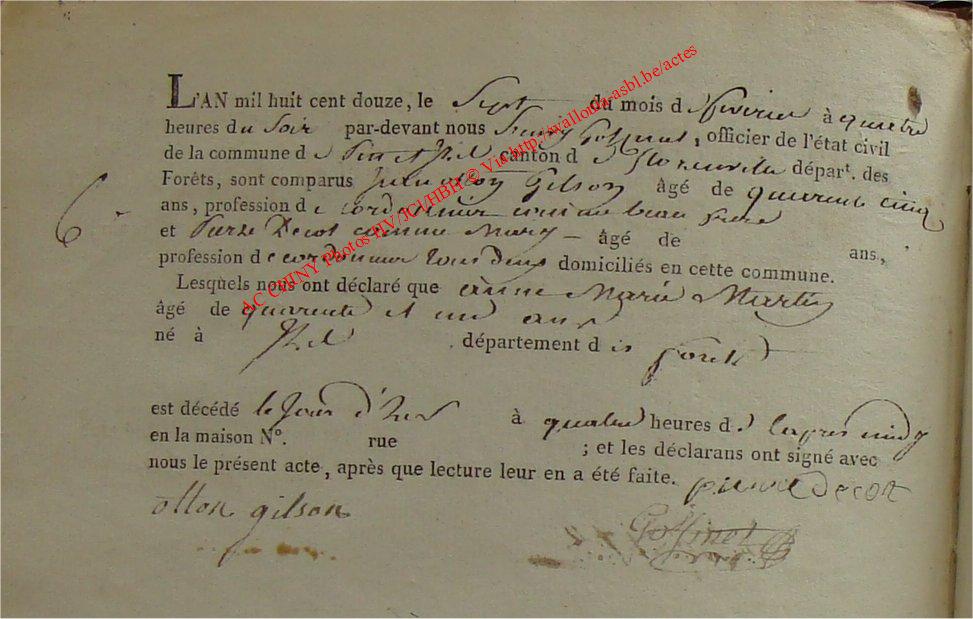 L'AN mil huit cent douze, le Sept du mois de fevrier à quatre
heures du Soir par-devant nous officier de l'état civil
de la commune d canton de florenville départ. des
Forêts, sont comparus Jean otton Gilson âgé de quarente cinq
6
ans, profession de cordonnier comme beau frere
et Pierre Decot comme Mary âgé de ans,
profession de cordonnier tous deux domiciliés en cette commune.
Lesquels nous ont déclaré que anne Marie Martin
âgé de quarente et un ans
né à Izel département des forêts
est décédé le Jour d'hier à quatre heures de lapres midy
en la maison N°. rue ; et les déclarans ont signé avec
nous le présent acte, après que lecture leur en a été faite. pierre decot
otton gilson
Goffinet
AC CHINY Photos HV/JCL/HBH © Via http://wallonia-asbl.be/actes